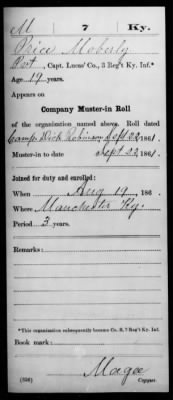 M 7 Ky.
Price Moberly
Pvt, Capt. Lucas' Co., 3 Reg't Ky. Inf.*
Age 19 years.
Appears on
Company Muster-in Roll
of the organization named above. Roll dated
Camp Dick Robinson Sept 22, 1861.
Muster-in to date Sept 22, 1861.
Joined for duty and enrolled:
When Aug 19, 186 .
Where Manchester Ky.
Period 3 years.
Remarks:
*This organization subsequently became Co. , 7 Reg't Ky. Inf.
Book mark:
Magee
(356) Copyist.